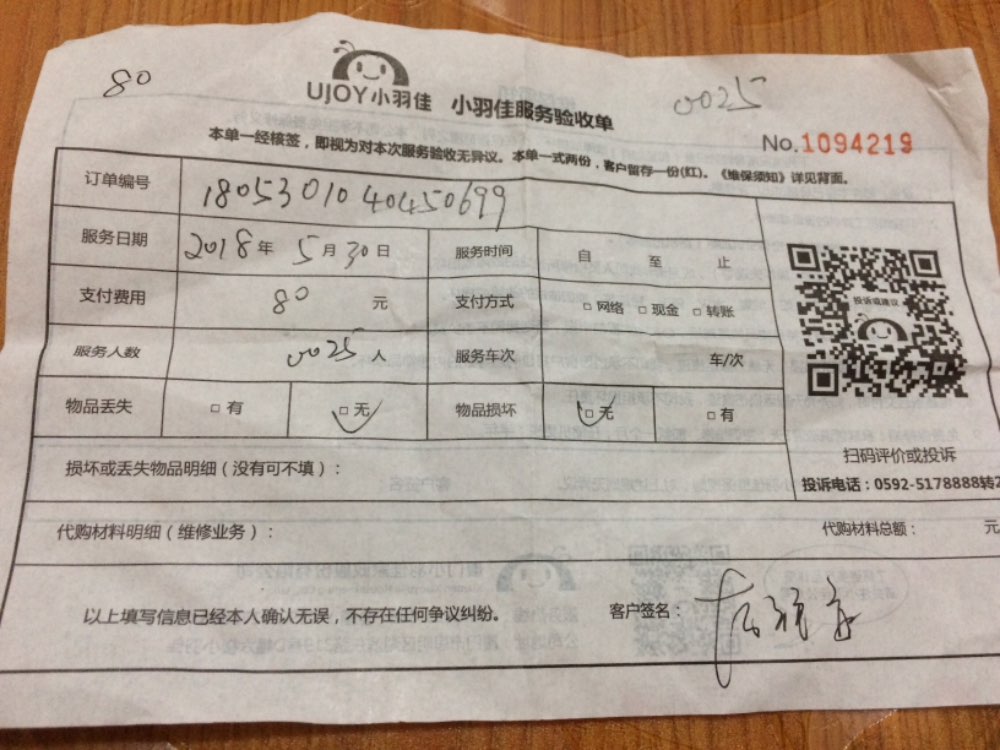 80
0025
UJOY小羽佳 小羽佳服务验收单
No.1094219
本单一经核签，即视为对本次服务验收无异议。本单一式两份，客户留存一份(红)。《维保须知》详见背面。
订单编号 180530104045 0699
服务日期 2018年 5月30日 服务时间 自 至 止
支付费用 80 元 支付方式 □ 网络 □ 现金 □ 转账
投诉或建议
服务人数 0025人 服务车次 车/次
物品丢失 □ 有 □ 无 物品损坏 □ 无 □ 有
扫码评价或投诉
损坏或丢失物品明细（没有可不填）：
投诉电话：0592-5178888转2
代购材料明细（维修业务）： 代购材料总额： 元
以上填写信息已经本人确认无误，不存在任何争议纠纷。 客户签名：